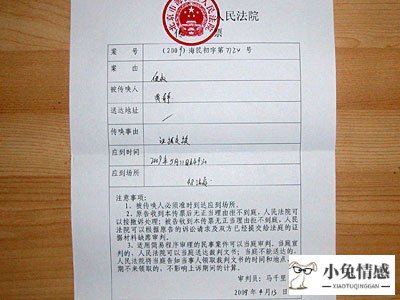 人民法院
票
案 号 (2009)海民初字第7124号
案 由
被传唤人
送达地址
传唤事由 证据交换
应到时间
应到场所
注意事项：
1、被传唤人必须准时到达应到场所。
2、原告收到本传票后无正当理由拒不到庭，人民法院可
以按撤诉处理；被告收到本传票后无正当理由拒不到庭，人民
法院可以根据原告的诉讼请求及双方已经提交给法庭的证
据材料缺席审判。
3、适用简易程序审理的民事案件可以当庭宣判。当庭宣
判的，人民法院可当庭送达裁判文书；当庭不能送达的，
人民法院将当庭告知当事人领取裁判文书的时间和地点，
期不来领取的，不影响上诉期间的计算。
审判员：马千里
2009年4月15日
小兔情感
XIAOTUQINGGAN